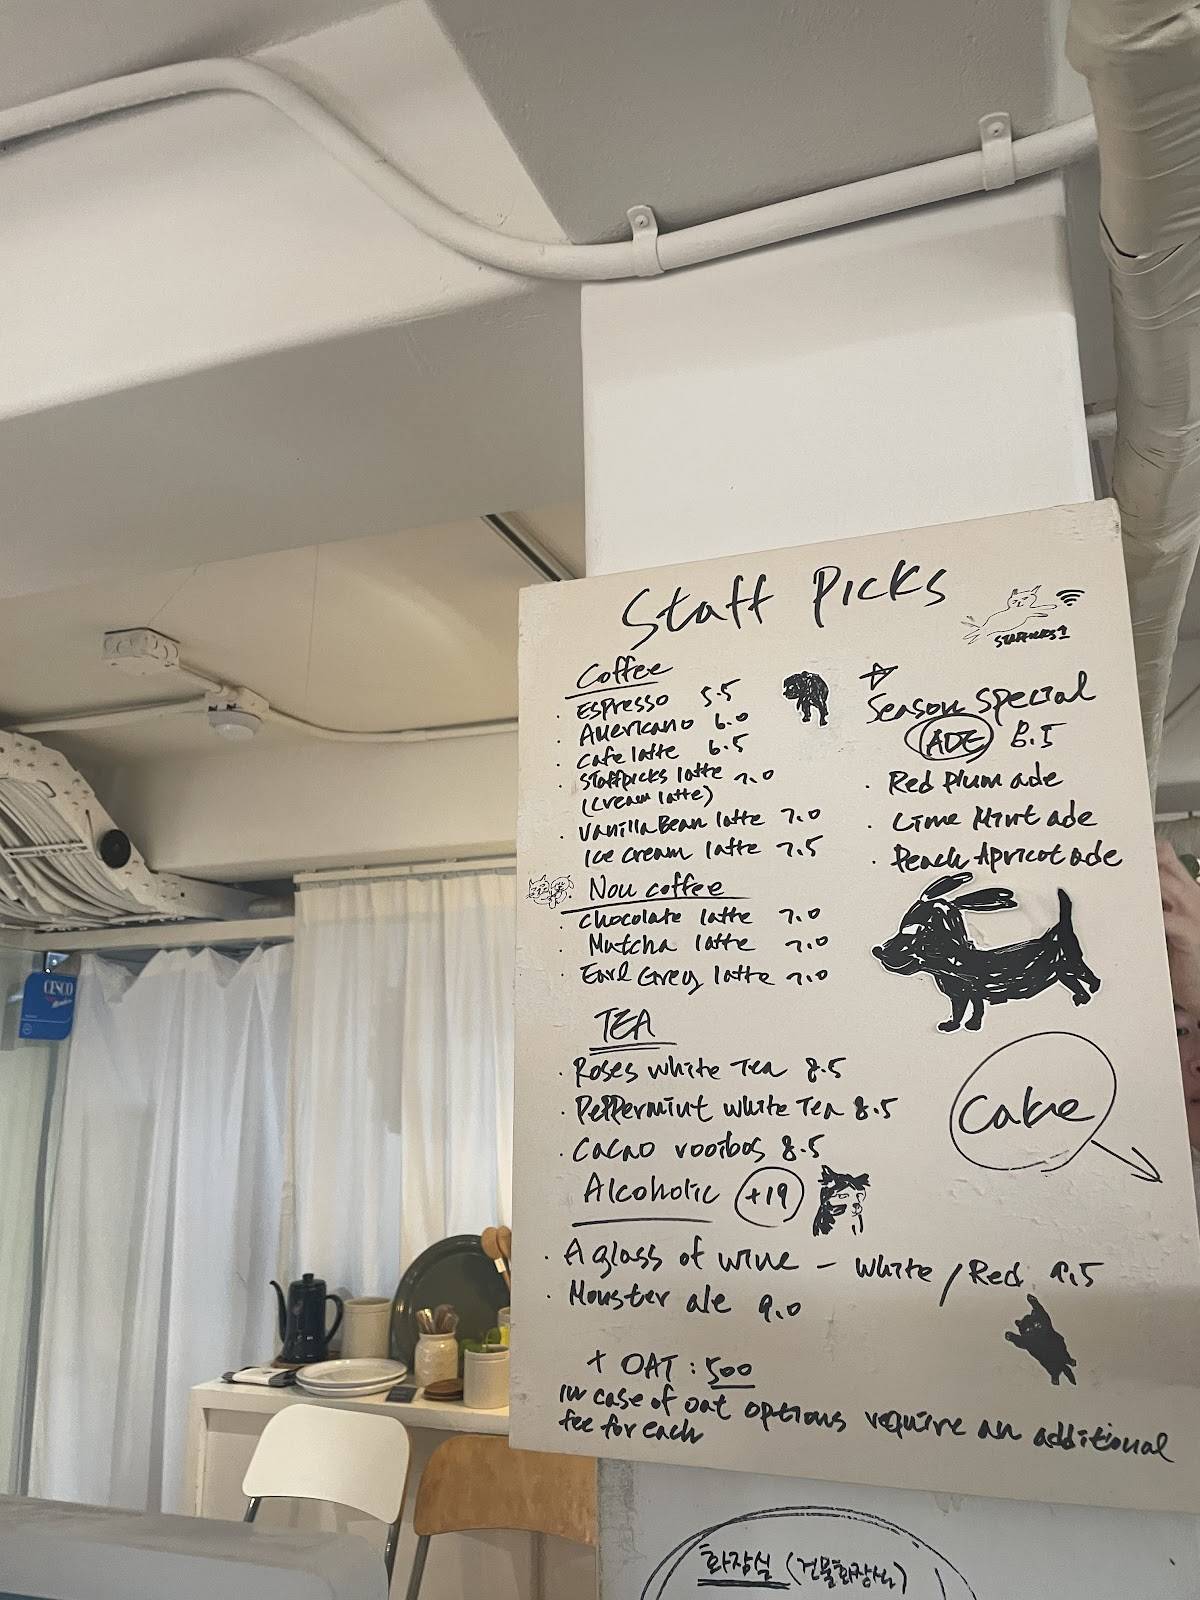 Staff Picks
STAFFPICKS 1
Coffee
· Espresso 5.5
· Americano 6.0
· Cafe latte 6.5
· Staffpicks latte 7.0
(Cream latte)
· Vanilla Bean latte 7.0
Ice cream latte 7.5
Non coffee
· Chocolate latte 7.0
· Matcha latte 7.0
· Earl Grey latte 7.0
TEA
· Roses white Tea 8.5
· Peppermint white Tea 8.5
· Cacao rooibos 8.5
Alcoholic +19
· A glass of wine – white / Red 9.5
· Monster ale 9.0
+ OAT : 500
in case of oat options require an additional
fee for each
Season special
ADE 8.5
· Red Plum ade
· Lime Mint ade
· Peach Apricot ade
Cake
CESCO
화장실 (건물화장실)